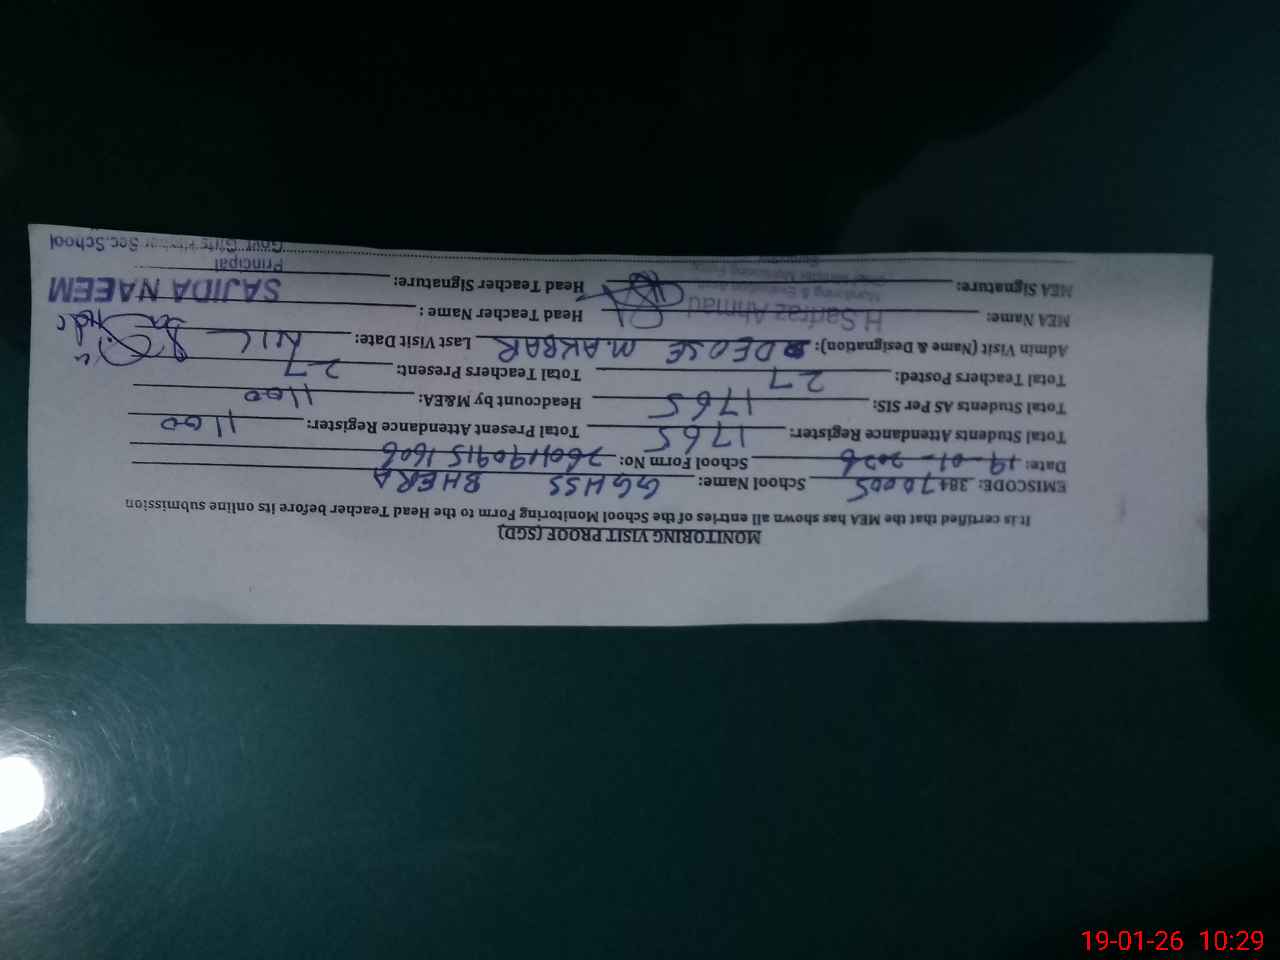 MONITORING VISIT PROOF (SGD)
It is certified that the MEA has shown all entries of the School Monitoring Form to the Head Teacher before its online submission
EMISCODE: 38470005 School Name: GGHSS BHERA
Date: 19-01-2026 School Form No: 26011909151606
Total Students Attendance Register: 1765 Total Present Attendance Register: 1100
Total Students AS Per SIS: 1765 Headcount by M&EA: 1100
Total Teachers Posted: 27 Total Teachers Present: 27
Admin Visit (Name & Designation): DEOSE M.AKBAR Last Visit Date: NIL
MEA Name: H.Sarfraz Ahmad Head Teacher Name :
Monitoring & Evaluation
MEA Signature: Head Teacher Signature: SAJIDA NAEEM
Principal
Govt. Girls Higher Sec.School
19-01-26 10:29